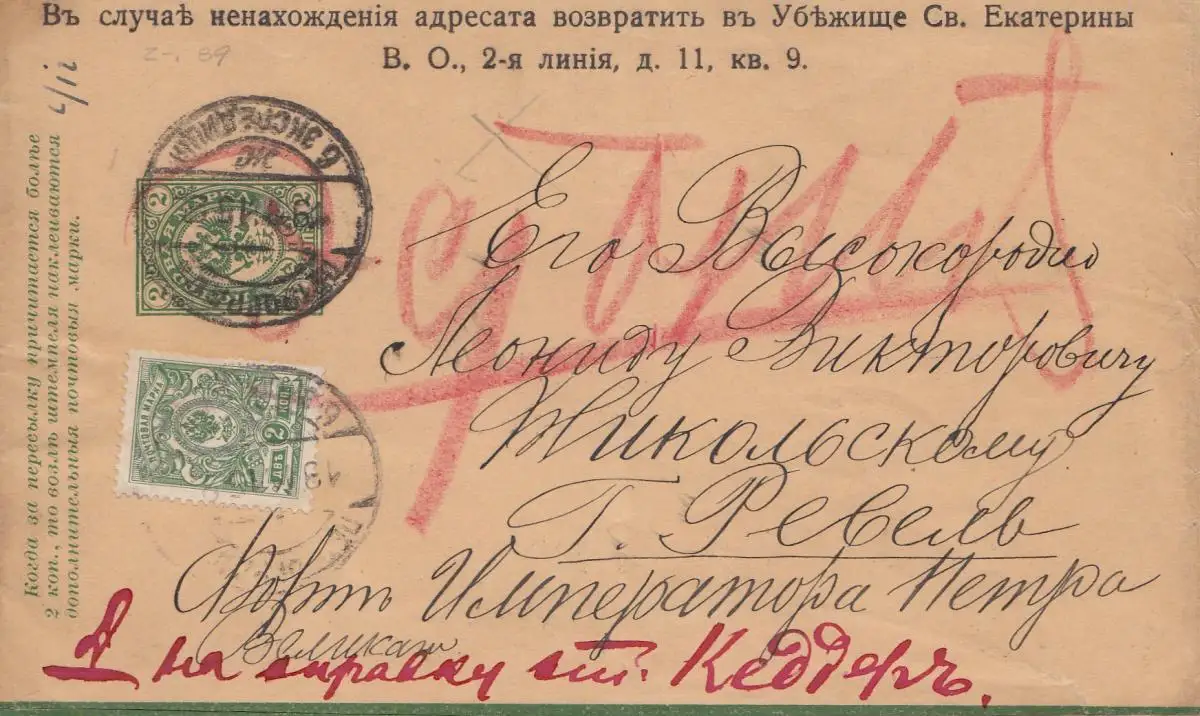 Въ случаѣ ненахожденія адресата возвратить въ Убѣжище Св. Екатерины
В. О., 2-я линія, д. 11, кв. 9.
Когда за пересылку причитается болѣе
2 коп., то возлѣ штемпеля наклеиваются
дополнительныя почтовыя марки.
6 ЭКСПЕДИЦІЯ
2
2
2
ПОЧТОВАЯ МАРКА
2 КОП
ДВѢ
Его Высокородію
Леониду Викторовичу
Никольскому
Г. Ревель
Портъ Императора Петра
Великаго
на справку ст. Кеддеръ.